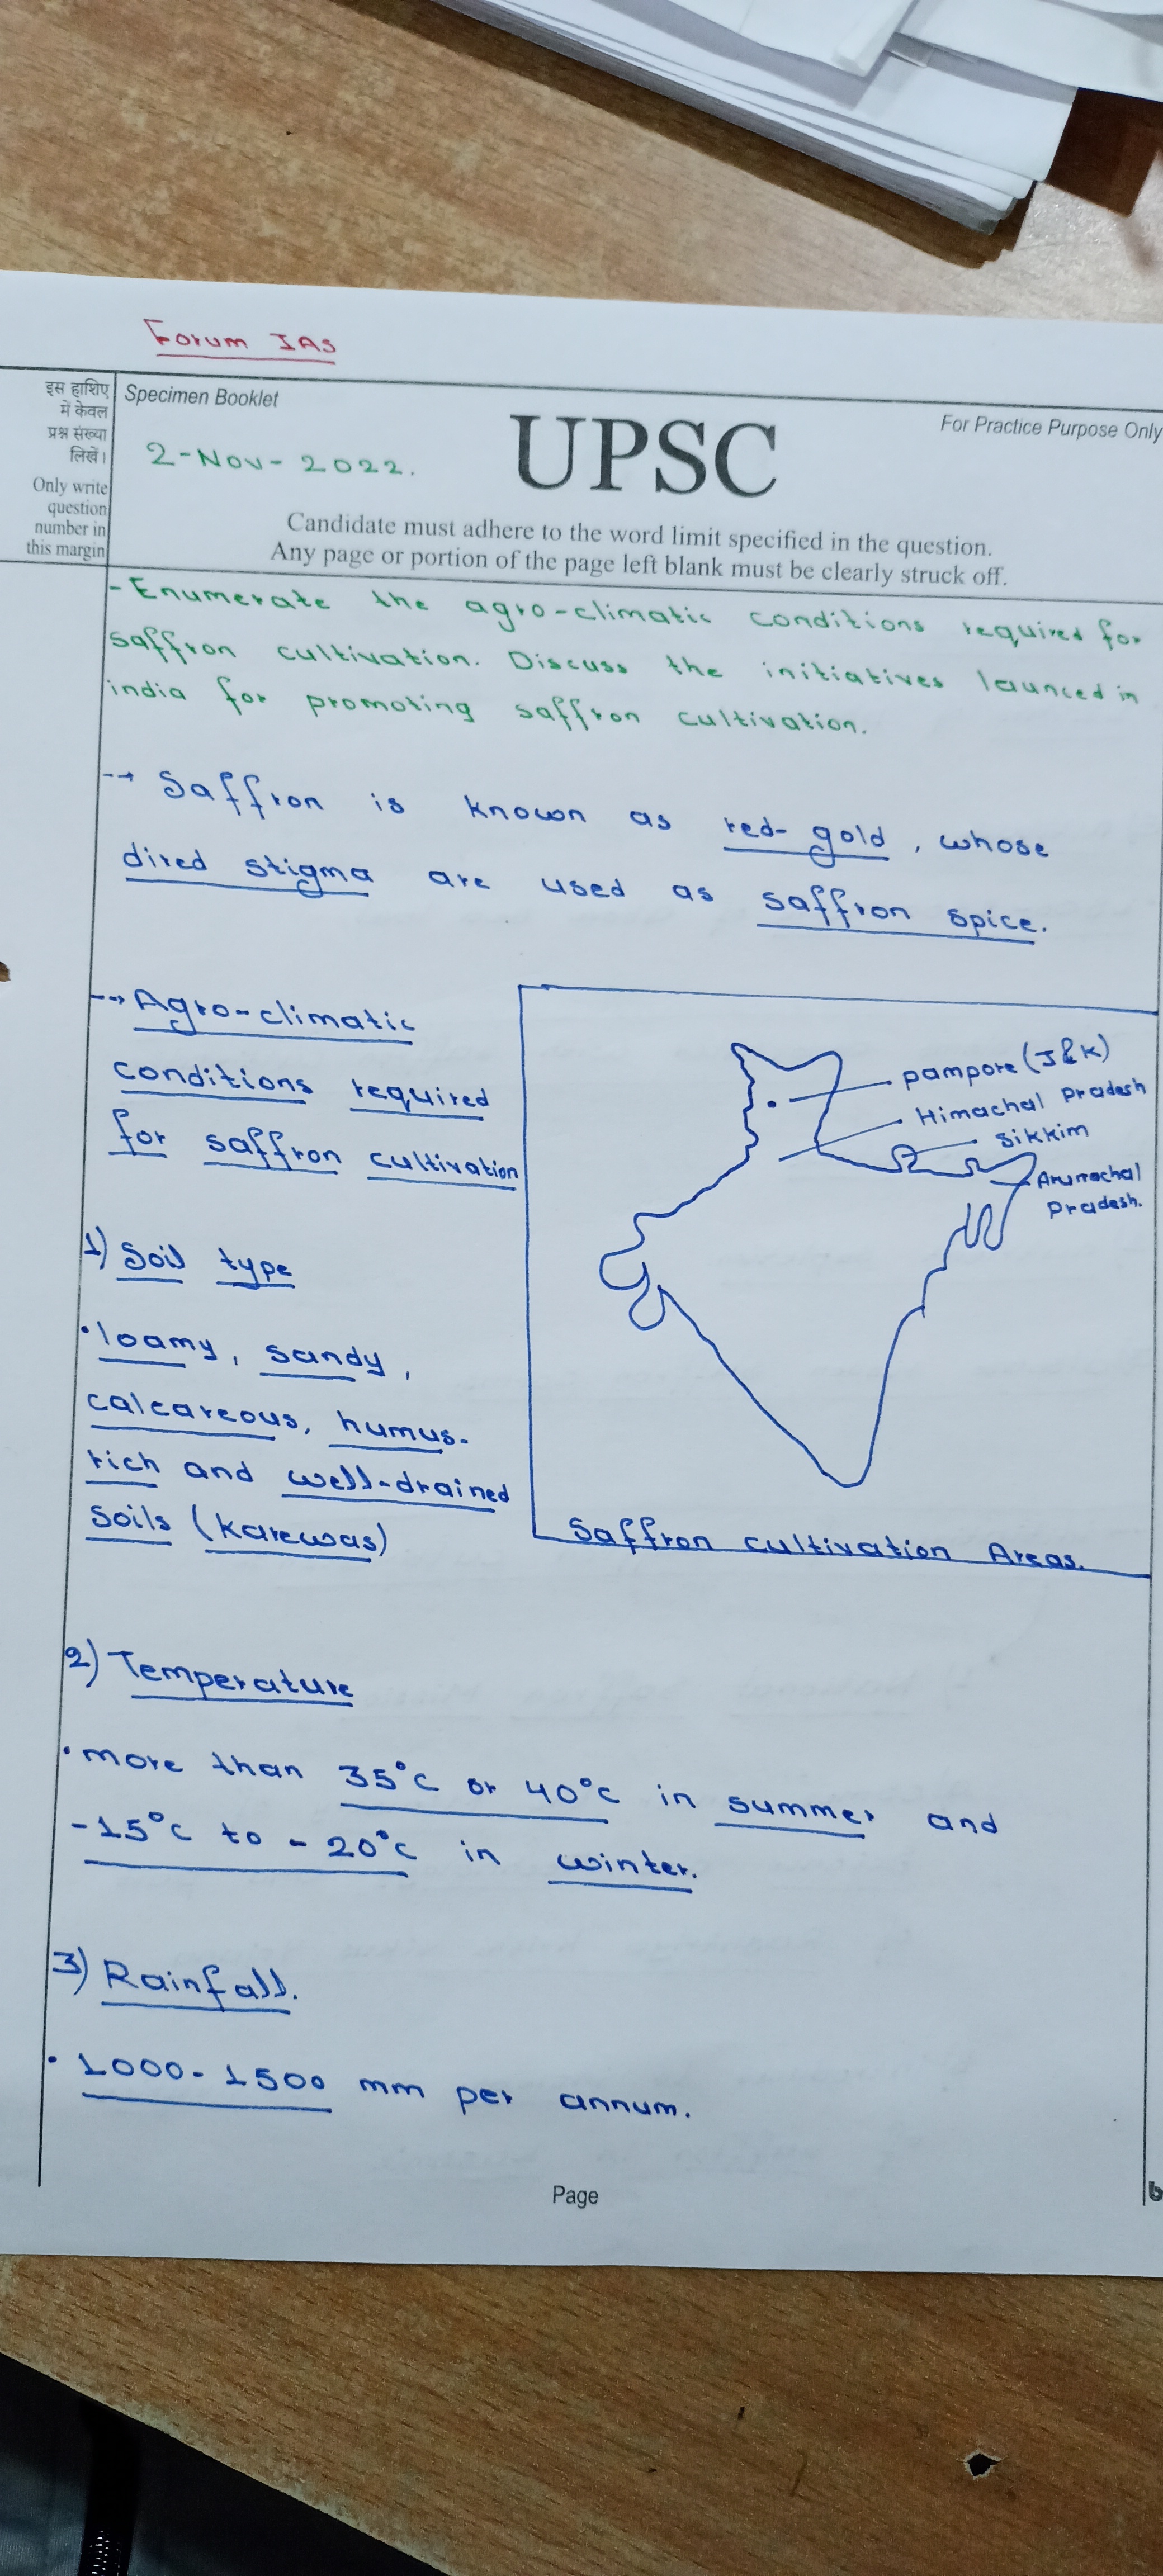 Forum IAS
इस हाशिए
में केवल
प्रश्न संख्या
लिखें।
Only write
question
number in
this margin
Specimen Booklet
2-Nov-2022.
UPSC
For Practice Purpose Only
Candidate must adhere to the word limit specified in the question.
Any page or portion of the page left blank must be clearly struck off.
- Enumerate the agro-climatic conditions required for
saffron cultivation. Discuss the initiatives launced in
india for promoting saffron cultivation.
--> Saffron is known as red-gold, whose
dired stigma are used as saffron spice.
--> Agro-climatic
conditions required
for saffron cultivation
1) Soil type
• loamy, sandy,
calcareous, humus-
rich and well-drained
soils (karewas)
pampore (J&K)
Himachal Pradesh
Sikkim
Arunachal
Pradesh.
Saffron cultivation Areas.
2) Temperature
• more than 35°c or 40°c in summer and
-15°c to -20°c in winter.
3) Rainfall.
• 1000-1500 mm per annum.
Page